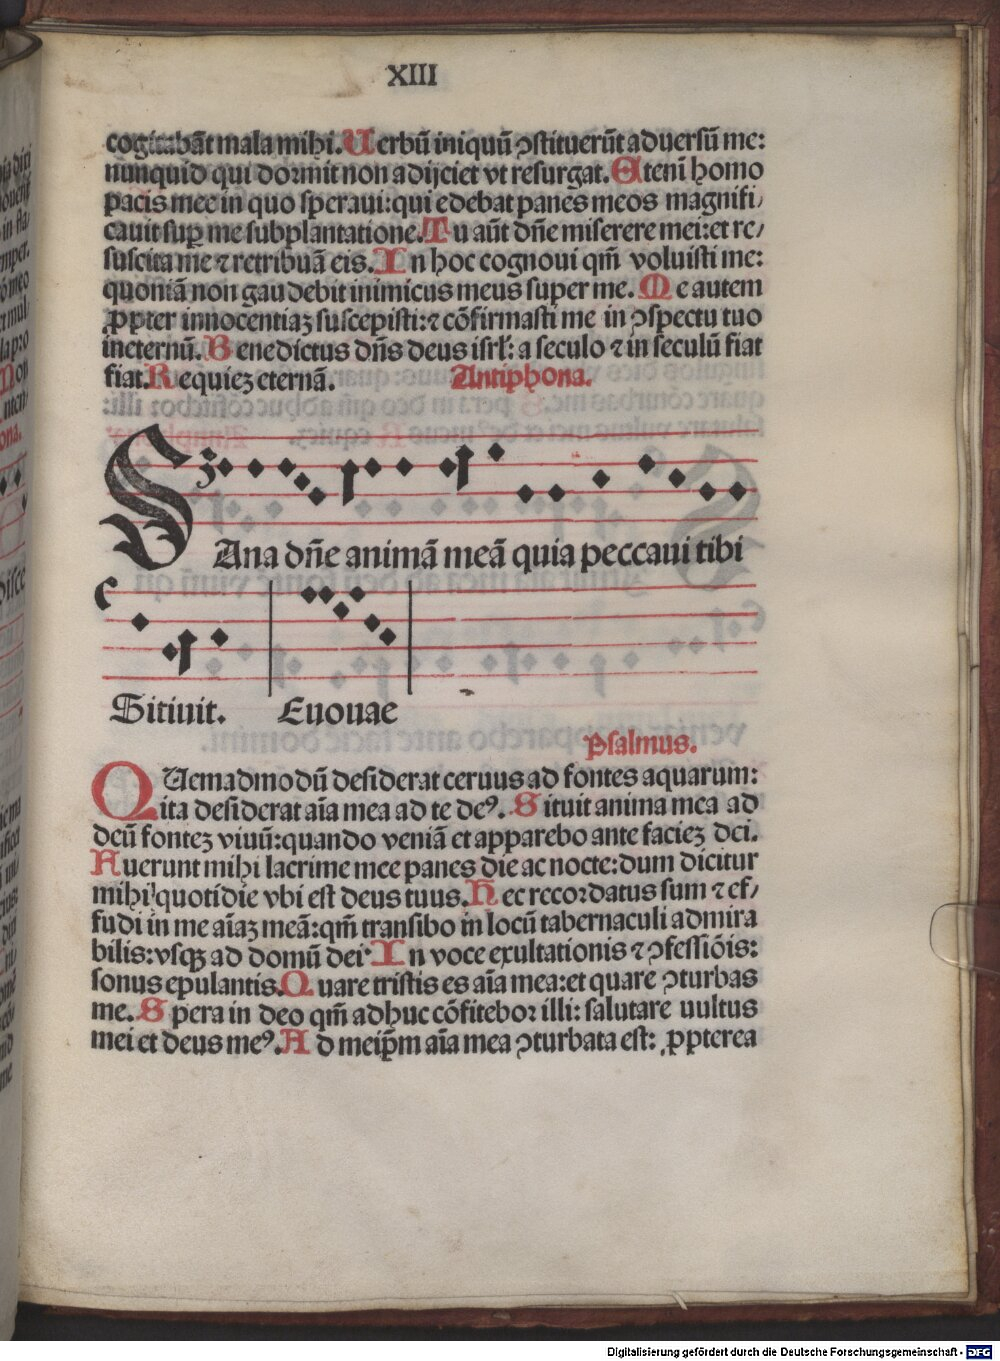 XIII
cogitabāt mala mihi. Uerbū iniquū ꝯstituerūt adversū me:
nunquid qui dormit non adijciet vt resurgat. Etenī homo
pacis mee in quo speraui: qui edebat panes meos magnifi/
cauit suꝑ me subplantatione. Tu aūt dn̄e miserere mei: et re/
suscita me ⁊ retribuā eis. In hoc cognoui qm̄ voluisti me:
quoniā non gaudebit inimicus meus super me. Me autem
ꝓpter innocentiaꝫ suscepisti: ⁊ cōfirmasti me in ꝯspectu tuo
ineternū. Benedictus dn̄s deus isrl̄: a seculo ⁊ in seculū fiat
fiat. Requieꝫ eternā. Antiphona.
SAna dn̄e animā meā quia peccaui tibi
Sitiuit. Euouae
Psalmus.
QUemadmodū desiderat ceruus ad fontes aquarum:
ita desiderat aīa mea ad te deꝰ. Situit anima mea ad
deū fonteꝫ viuū: quando veniā et apparebo ante facieꝫ dei.
Fuerunt mihi lacrime mee panes die ac nocte: dum dicitur
mihi quotidie vbi est deus tuus. Hec recordatus sum ⁊ ef/
fudi in me aīaꝫ meā: qm̄ transibo in locū tabernaculi admira
bilis: vsqꝫ ad domū dei. In voce exultationis ⁊ ꝯfessiōis:
sonus epulantis. Quare tristis es aīa mea: et quare ꝯturbas
me. Spera in deo qm̄ adhuc cōfitebor illi: salutare uultus
mei et deus meꝰ. Ad meip̄m aīa mea ꝯturbata est: ꝓpterea
Digitalisierung gefördert durch die Deutsche Forschungsgemeinschaft - DFG